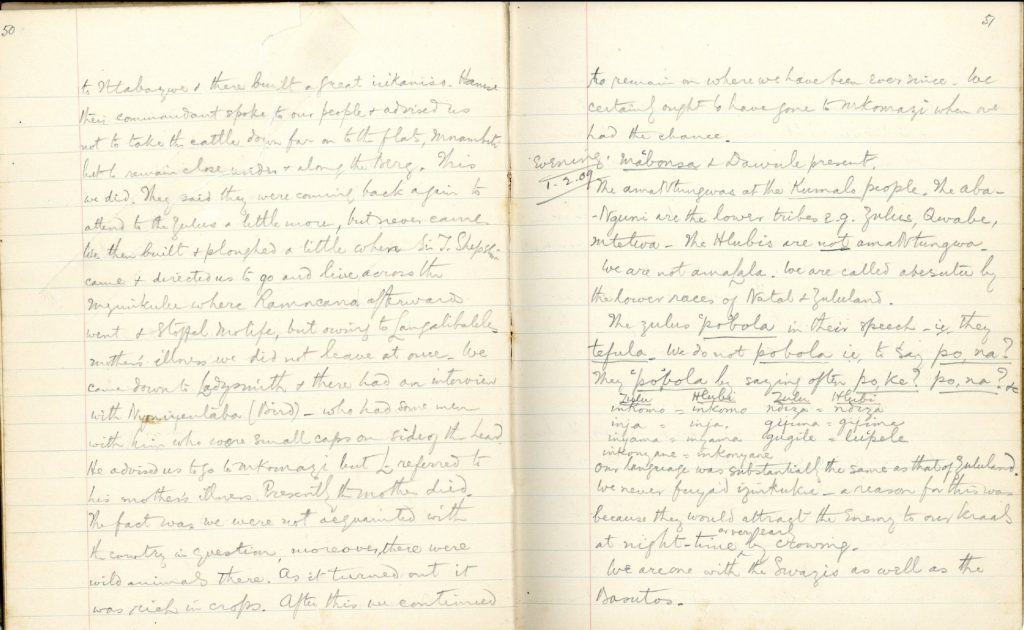 50
to Ntabazwe & there built a great isikaniso.
their commandant spoke to our people & advised us
not to take the cattle down far on to the flat, Mnambiti
but to remain close under & along the Berg. This
we did. They said they were coming back again to
attend to the Zulus a little more, but never came.
We then built & ploughed a little when Sir T. Shepstone
came & directed us to go and live across the
Mzimkulu where Ramncana afterwards
went & Stoffel Molife, but owing to Langalibalele's
mother's illness we did not leave at once. We
came down to Ladysmith & there had an interview
with (Bird) - who had some men
with him who wore small caps on side of the head.
He advised us to go to Mkomazi but L referred to
his mother's illness. Presently the mother died.
The fact was we were not acquainted with
the country in question, moreover, there were
wild animals there. As it turned out it
was rich in crops. After this we continued
51
to remain on where we have been ever since. We
certainly ought to have gone to Mkomazi when we
had the chance.
Evening. Mabonsa & Dawule present.
1.2.09
The amaNtungwas at the Kumalo people. The aba-
-Nguni are the lower tribes e.g. Zulus, Qwabe,
Mtetwa - The Hlubis are not amaNtungwa.
We are not amalala. We are called abesutu by
the lower races of Natal & Zululand.
The Zulus 'pobola in their speech - ie. they
tefula. We do not pobola ie. to say po, na?
They 'pobola by saying often po, ke? po, na? &c
Zulu Hlubi Zulu Hlubi
inkomo = inkomo ndiza = ndiza
inja = inja. gijima = gijima
inyama = inyama gugile = lupele
inkonyane = inkonyane
Our language was substantially the same as that of Zululand.
We never fuya'd izinkuku - a reason for this was
because they would attract the enemy to our kraals
at night-time, or very early by crowing.
We are one with the Swazis as well as the
Basutos.